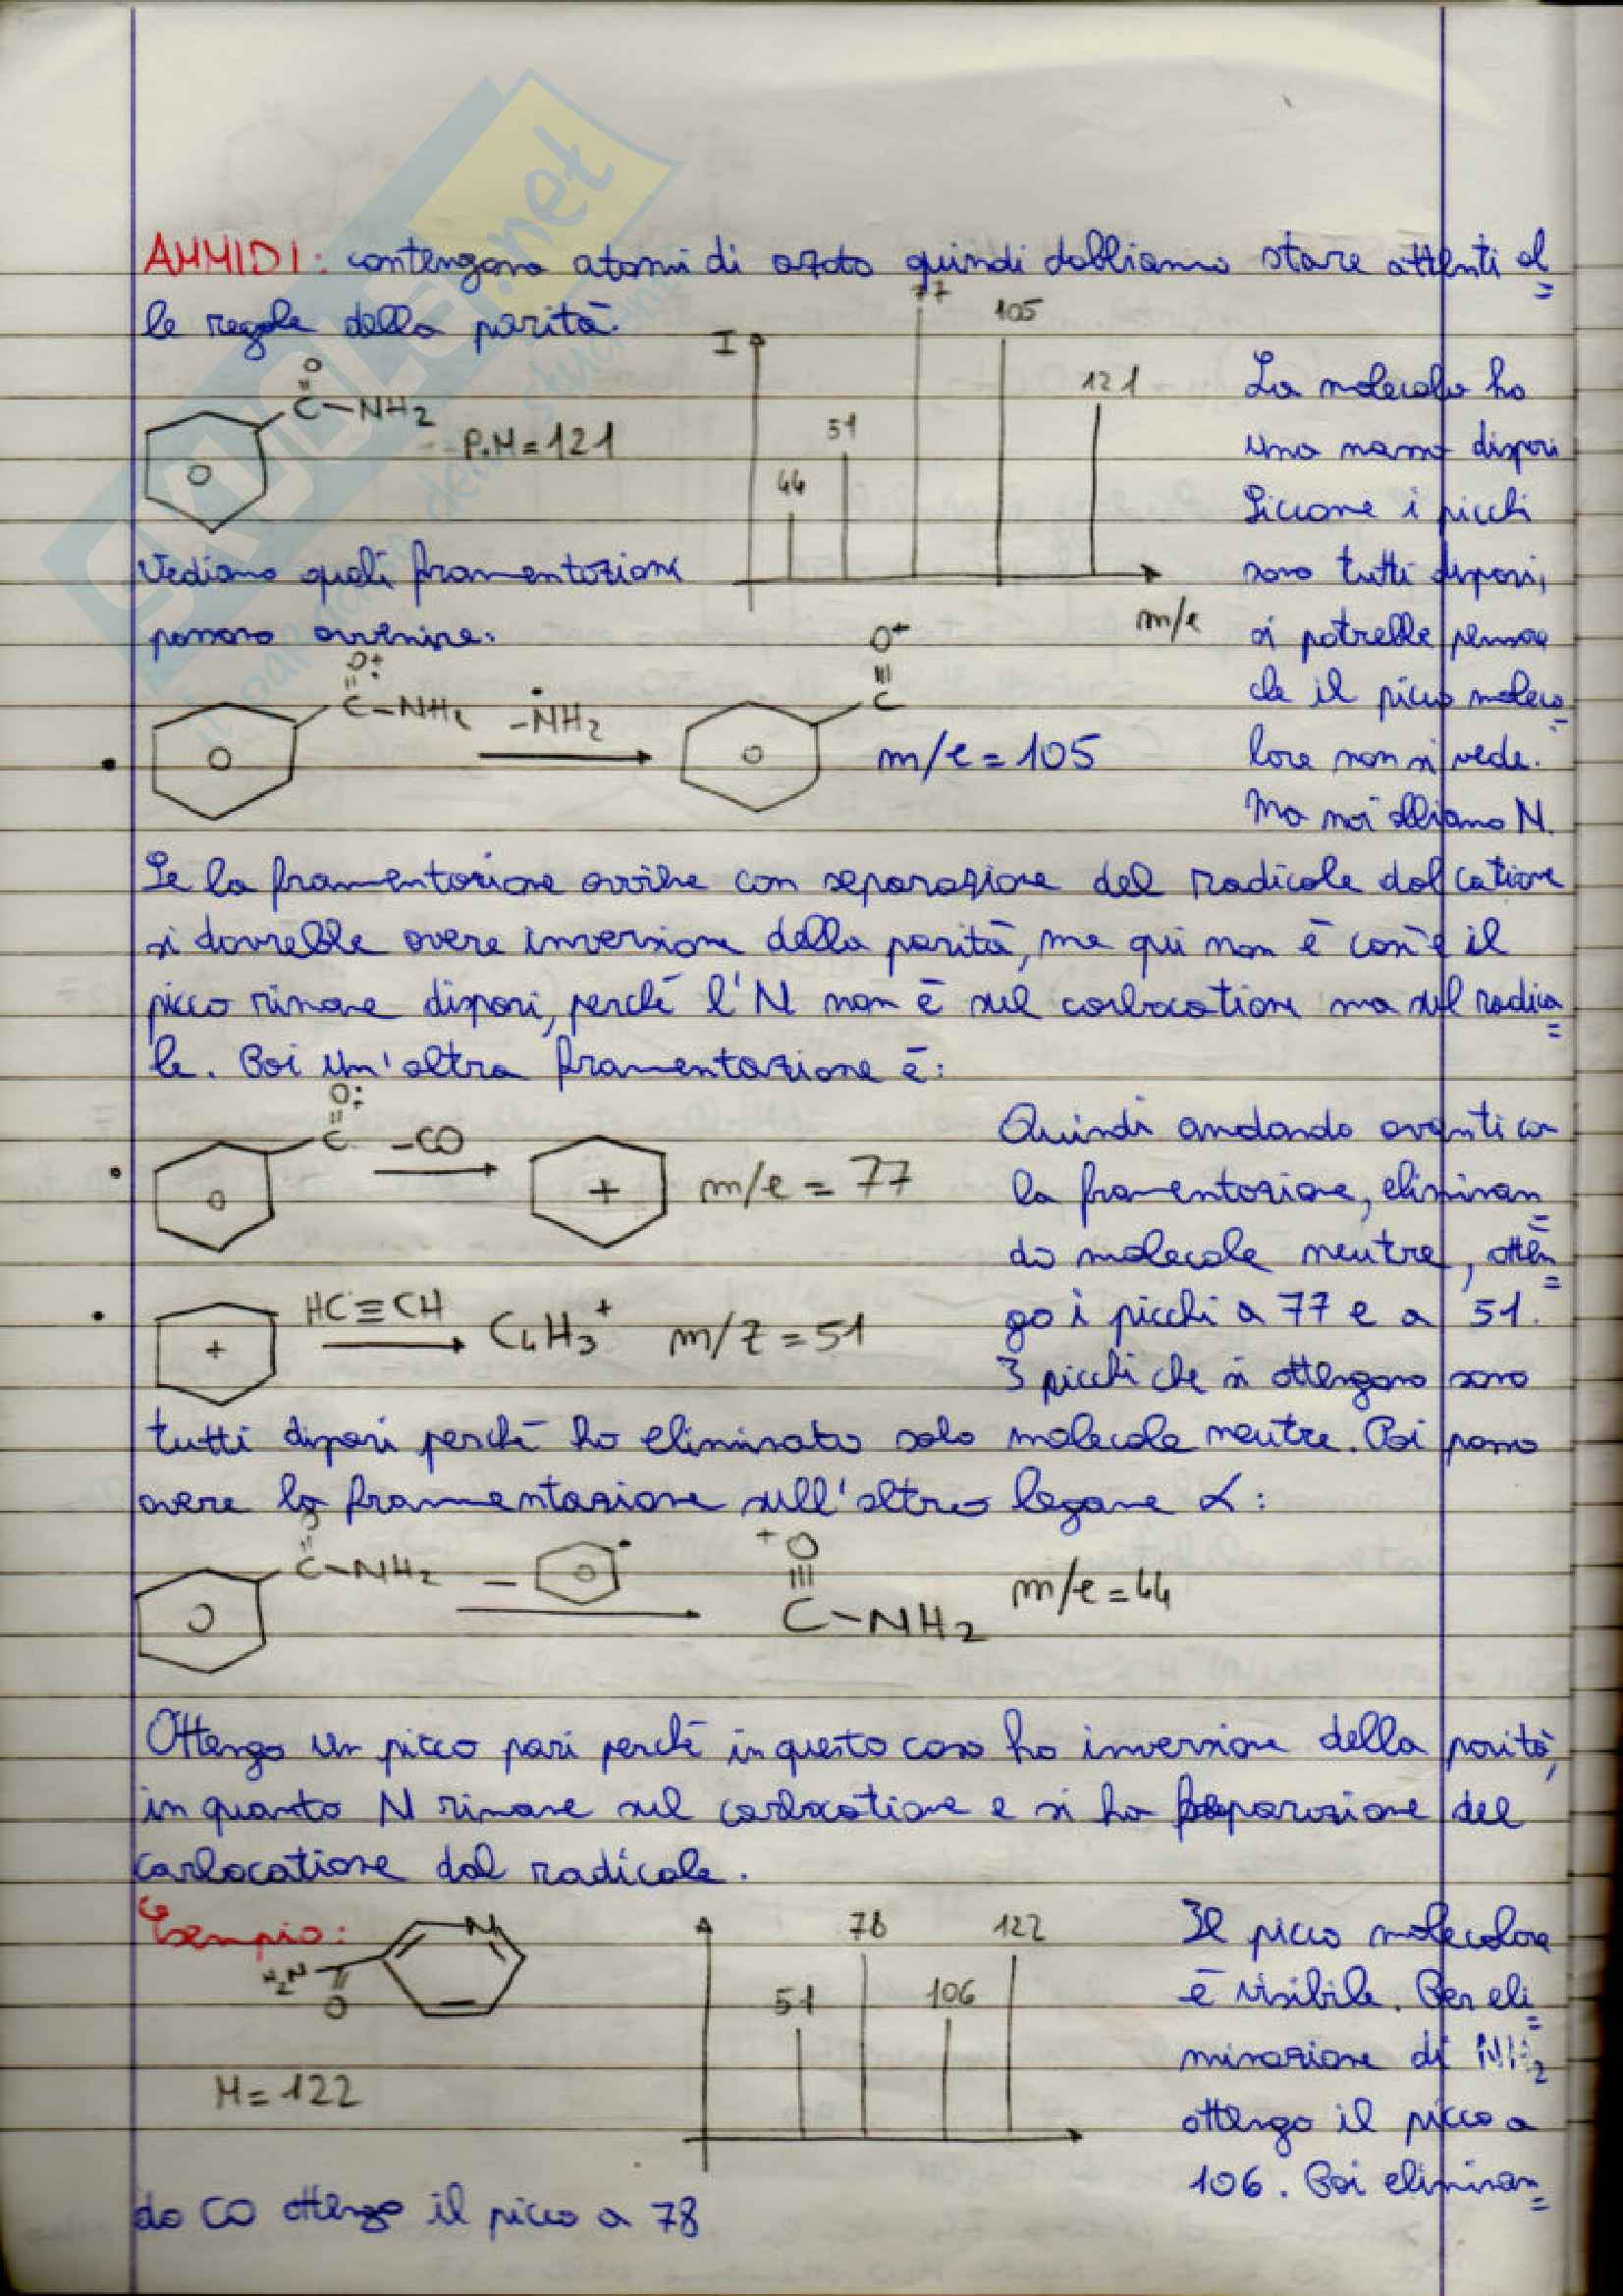 AMMIDI: contengono atomi di azoto quindi dobbiamo stare attenti al
le regole della parità.
O
C-NH2
P.M=121
I
44
51
77
105
121
m/e
La molecola ha
una massa dispari
Siccome i picchi
sono tutti dispari,
si potrebbe pensare
che il picco moleco
lare non si vede.
Ma noi abbiamo N.
Vediamo quali frammentazioni
possono avvenire:
O+
C-NH2
-NH2
O+
C
m/e=105
Se la frammentazione avviene con separazione del radicale dal catione
si dovrebbe avere inversione della parità, ma qui non è così e il
picco rimane dispari, perché l'N non è sul carbocatione ma sul radica
le. Poi un'altra frammentazione è:
O:
C
-CO
+
m/e = 77
HC≡CH
+
C4H3+
m/z = 51
Quindi andando avanti con
la frammentazione, eliminan
do molecole neutre, otten
go i picchi a 77 e a 51.
I picchi che si ottengono sono
tutti dispari perché ho eliminato solo molecole neutre. Poi posso
avere la frammentazione sull'altro legame α:
O
C-NH2
-
+O
C-NH2
m/e=44
Ottengo un picco pari perché in questo caso ho inversione della parità,
in quanto N rimane sul carbocatione e si ha separazione del
carbocatione dal radicale.
Esempio:
N
H2N
O
M=122
51
78
106
122
Il picco molecolare
è visibile. Per eli
minazione di NH2
ottengo il picco a
106. Poi eliminan
do CO ottengo il picco a 78
SKUOLA.net